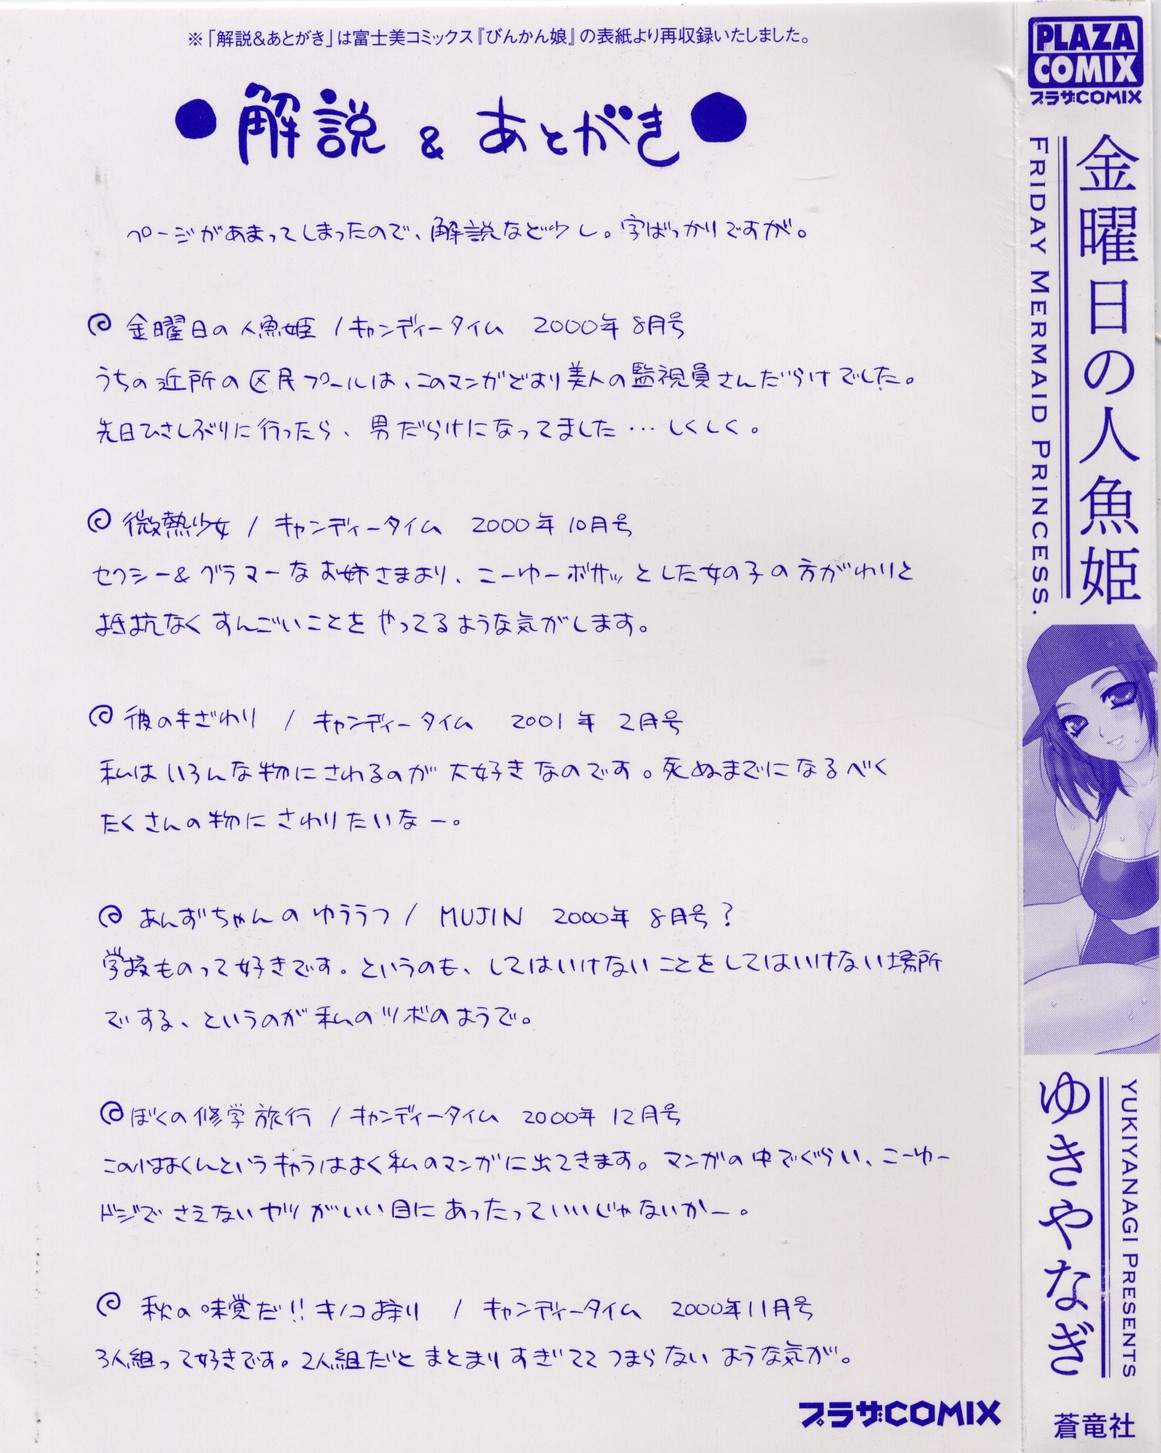 ※「解説&あとがき」は富士美コミックス『びんかん娘』の表紙より再収録いたしました。
●解説 & あとがき●
ページがあまってしまったので、解説など少し。字ばっかりですが。
金曜日の人魚姫 / キャンディータイム 2000年8月号
うちの近所の区民プールは、このマンガどおり美人の監視員さんだらけでした。
先日ひさしぶりに行ったら、男だらけになってました…しくしく。
微熱少女 / キャンディータイム 2000年10月号
セクシー&グラマーなお姉さまより、こーゆーボサッとした女の子の方がわりと
抵抗なくすんごいことをやってるような気がします。
彼の手ざわり / キャンディータイム 2001年2月号
私はいろんな物にさわるのが大好きなのです。死ぬまでになるべく
たくさんの物にさわりたいなー。
あんずちゃんのゆううつ / MUJIN 2000年8月号?
学校ものって好きです。というのも、してはいけないことをしてはいけない場所
でする、というのが私のツボのようで。
ぼくの修学旅行 / キャンディータイム 2000年12月号
このはぉくんというキャラはよく私のマンガに出てきます。マンガの中でぐらい、こーゆー
ドジでさえないヤツがいい目にあったっていいじゃないかー。
秋の味覚だ!!キノコ狩り / キャンディータイム 2000年11月号
3人組って好きです。2人組だとまとまりすぎててつまらないような気が。
プラザCOMIX
PLAZA
COMIX
プラザCOMIX
金曜日の人魚姫
FRIDAY MERMAID PRINCESS.
ゆきやなぎ
YUKIYANAGI PRESENTS
蒼竜社